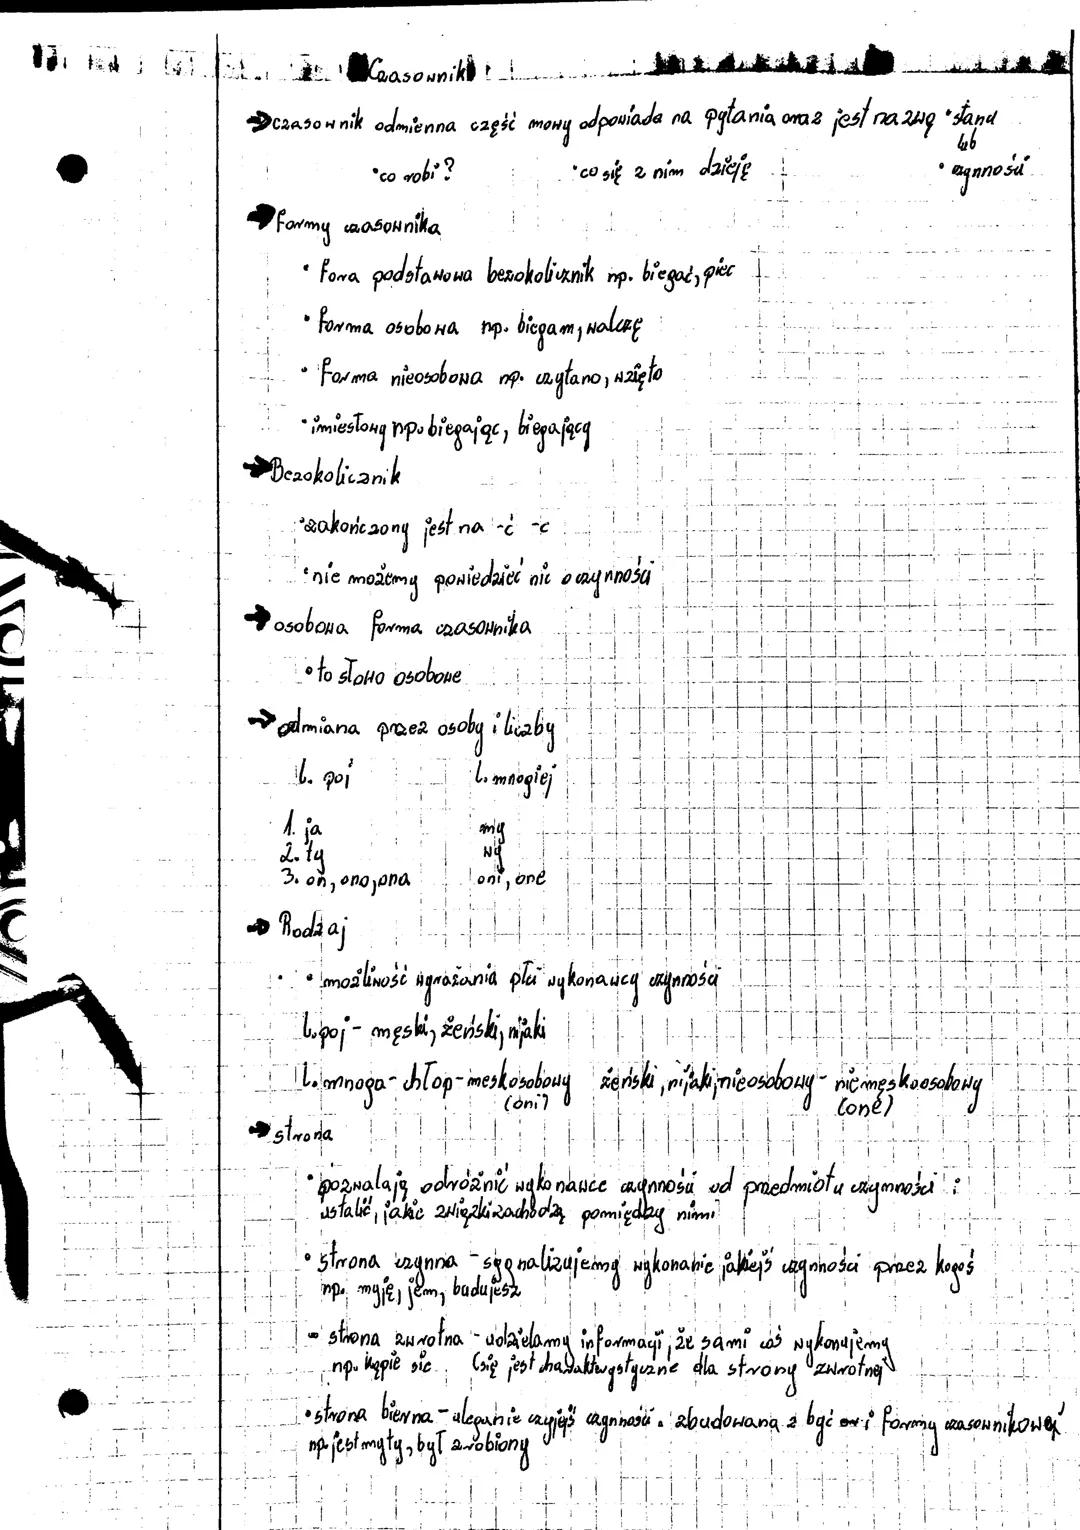 Czasownik
→ czasownik odmienna część mowy odpowiada na pytania oraz jest nazwą • stanu
lub
• co robi? • co się z nim dzieję • czynności
→ formy czasownika
• fora podstawowa bezokolicznik np. biegać, piec
• forma osobowa np. biegam, walczę
• forma nieosobowa np. czytano, wzięto
• imiesłowy np. biegając, biegający
→ Bezokolicznik
• zakończony jest na -ć -c
• nie możemy powiedzieć nic o czynności
→ osobowa forma czasownika
• to słowo osobowe
→ odmiana przez osoby i liczby
l. poj l. mnogiej
1. ja my
2. ty wy
3. on, ono, ona oni, one
→ Rodzaj
• możliwość wyrażania płci wykonawcy czynności
l. poj - męski, żeński, nijaki
l. mnoga - chłop - meskosobowy żeński, nijaki, nieosobowy - niemęskoosobowy
(oni) (one)
→ strona
• pozwalają odróżnić wykonawce czynności od przedmiotu czymności i
ustalić, jakie związki zachodzą pomiędzy nimi
• strona czynna - sygnalizujemy wykonanie jakiejś czynności przez kogoś
np. myję, jem, budujesz
• strona zwrotna - udzielamy informacji, że sami coś wykonujemy
np. kąpie sie (się jest charakterystyczne dla strony zwrotnej
• strona bierna - uleganie czyjejś czynności. zbudowana z być i formy czasownikowej
np. jest myty, był zrobiony